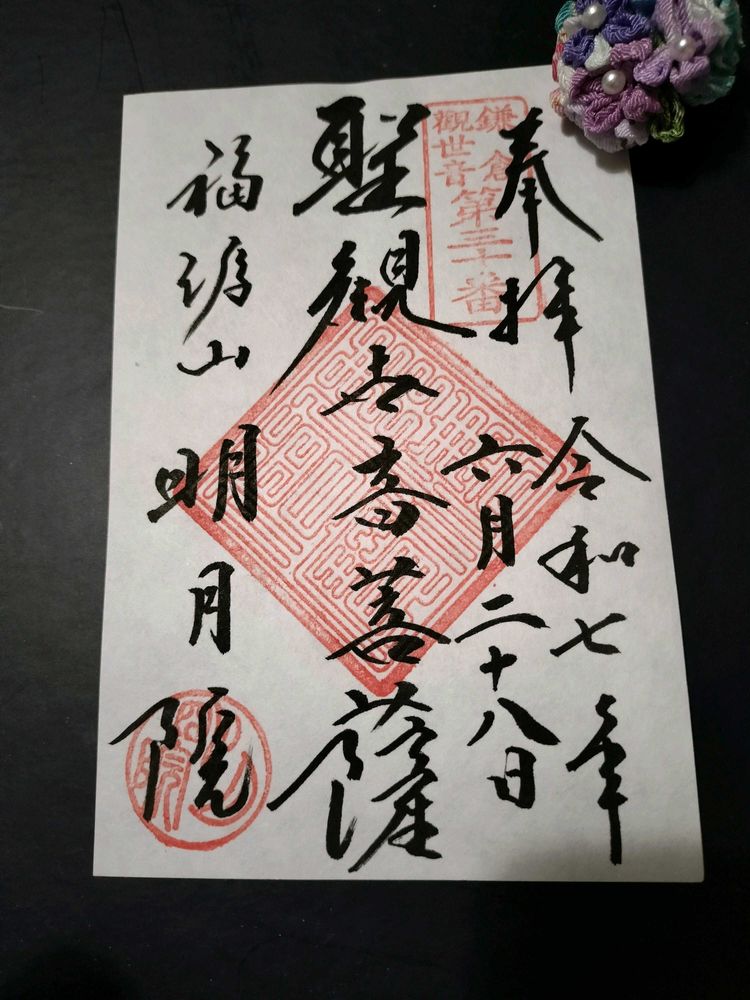 奉拝 令和七年
六月二十八日
鎌倉
觀世音
第三十番
聖観世音菩薩
福源山 明月院